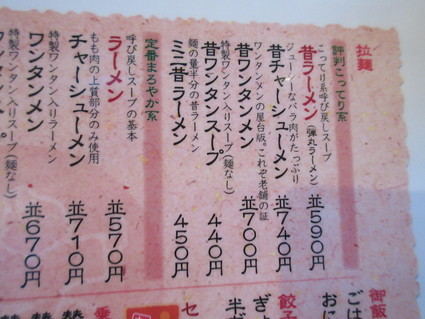 拉麺
評判こってり系
こってり系呼び戻しスープ
昔ラーメン(弾丸ラーメン)
並590円
ジューシーなバラ肉がたっぷり
昔チャーシューメン
並740円
ワンタンメンの屋台版。これぞ老舗の証
昔ワンタンメン
並700円
特製ワンタン入りスープ(麺なし)
昔ワンタンスープ
440円
麺の量半分の昔ラーメン
ミニ昔ラーメン
450円
定番まろやか系
呼び戻しスープの基本
ラーメン
並570円
もも肉の上質部分のみ使用
チャーシューメン
並710円
特製ワンタン入りラーメン
ワンタンメン
並670円
特製ワンタン入りスープ(麺なし)
御飯
ごは
おに
餃子
ぎょ
半
セ